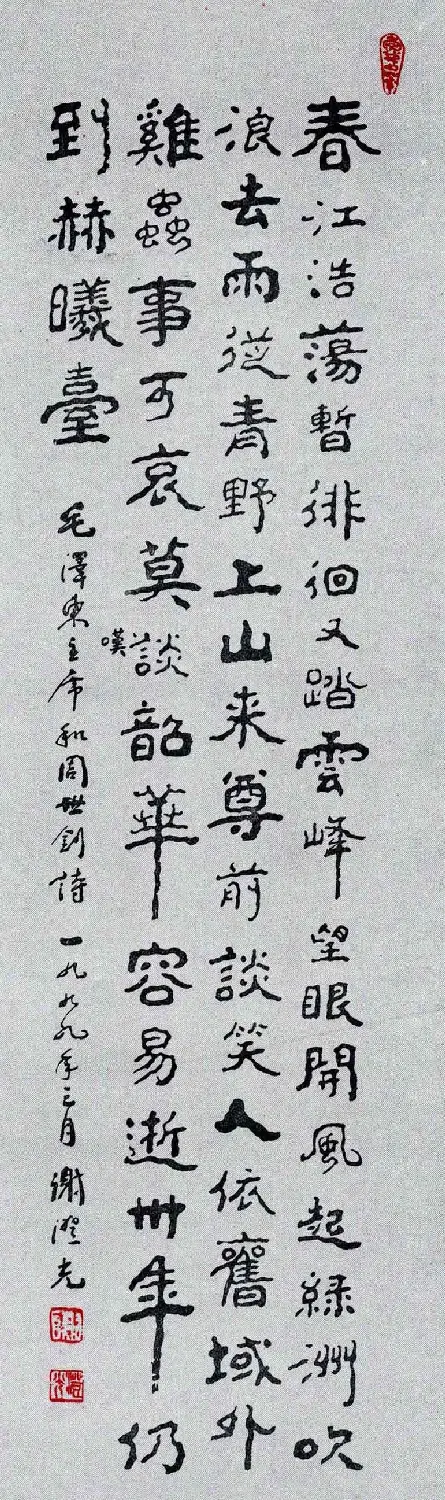 春江浩蕩暫徘徊又踏雲峰望眼開風起綠洲吹
浪去雨從青野上山来尊前談笑人依舊域外
雞蟲事可哀莫談韶華容易逝卅年仍
嘆
到赫曦臺
毛澤東主席和周世釗詩 一九九九年三月 謝澄光